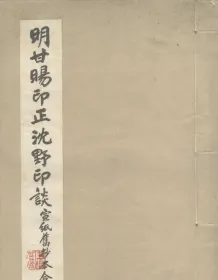 明甘暘印正沈野印談宣紙舊抄本合